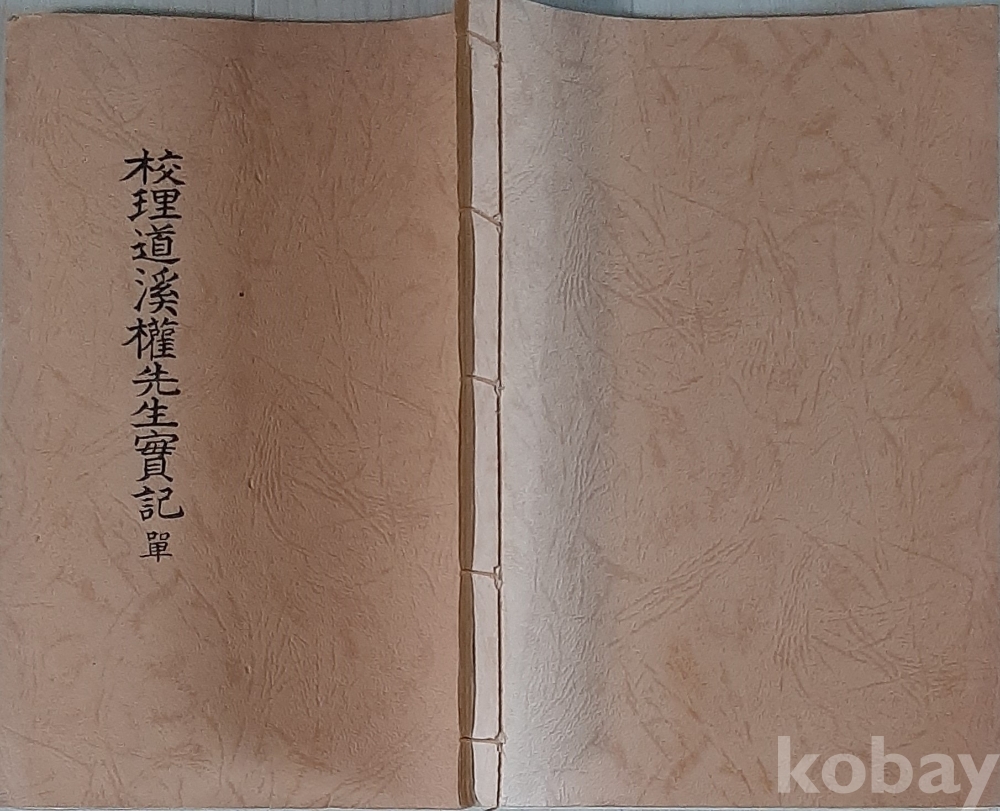 校理道溪權先生實記 單
kobay